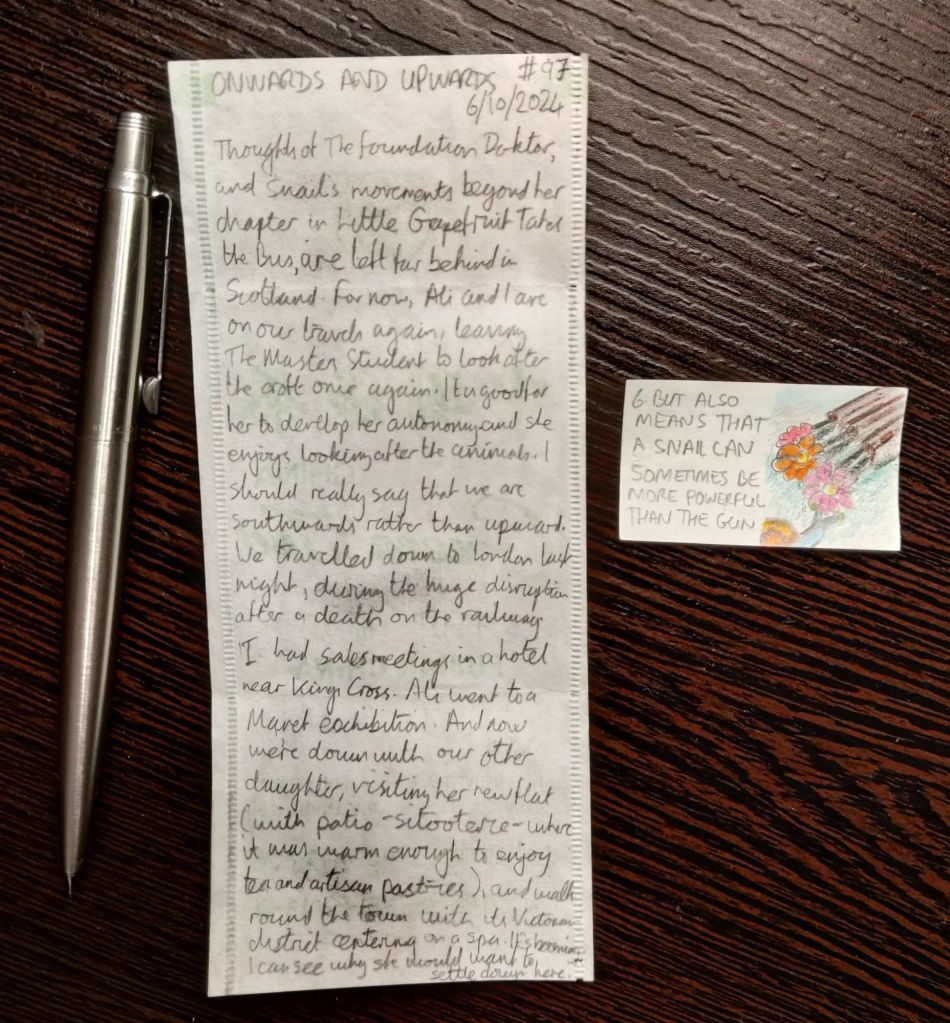 ONWARDS AND UPWARDS #97
6/10/2024
Thoughts of The Foundation Doktor,
and Snail's movements beyond her
chapter in Little Grapefruit Takes
the Bus, are left far behind in
Scotland. For now, Ali and I are
on our travels again, leaving
The Master Student to look after
the croft once again. It is good for
her to develop her autonomy, and she
enjoys looking after the animals. I
should really say that we are
southwards rather than upward.
We travelled down to London last
night, during the huge disruption
after a death on the railway.
I had sales meetings in a hotel
near Kings Cross. Ali went to a
exhibition. And now
we're down with our other
daughter, visiting her new flat
(with patio - sitooterie - where
it was warm enough to enjoy
tea and artisan pastries), and walk
round the town with its Victorian
district centering on a spa. It's booming.
I can see why she would want to
settle down here.
6. BUT ALSO
MEANS THAT
A SNAIL CAN
SOMETIMES BE
MORE POWERFUL
THAN THE GUN